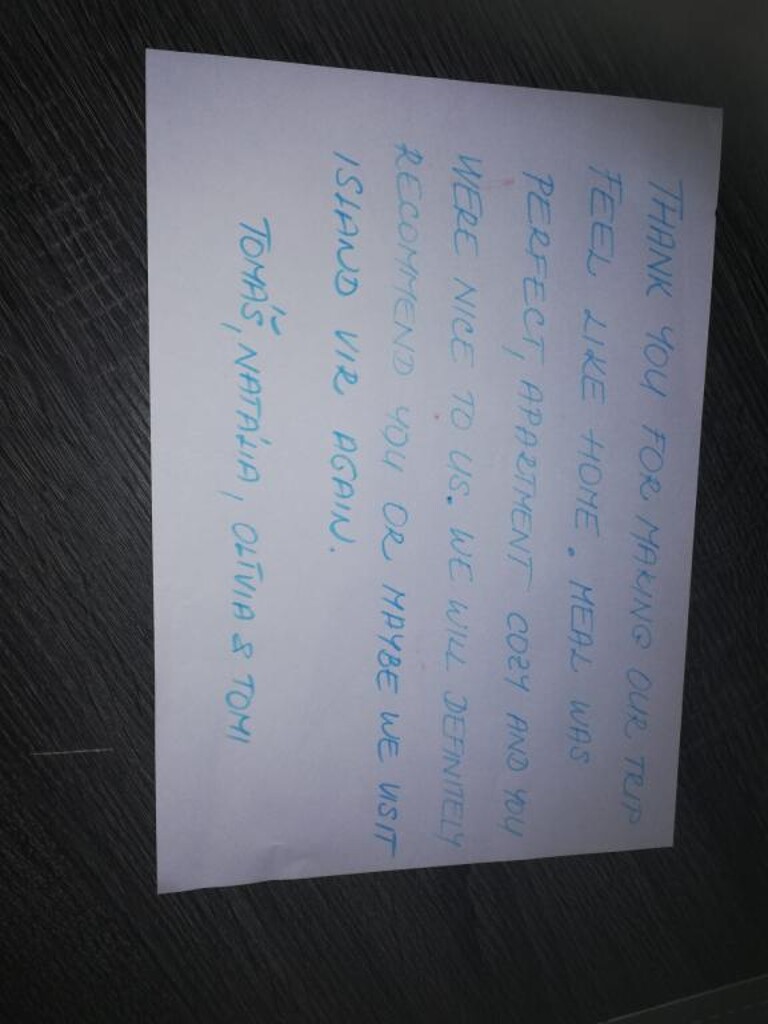 THANK YOU FOR MAKING OUR TRIP
FEEL LIKE HOME. MEAL WAS
PERFECT, APARTMENT COZY AND YOU
WERE NICE TO US. WE WILL DEFINITELY
RECOMMEND YOU OR MAYBE WE VISIT
ISLAND VIR AGAIN.
TOMÁŠ, NATÁLIA, OLÍVIA & TOMI